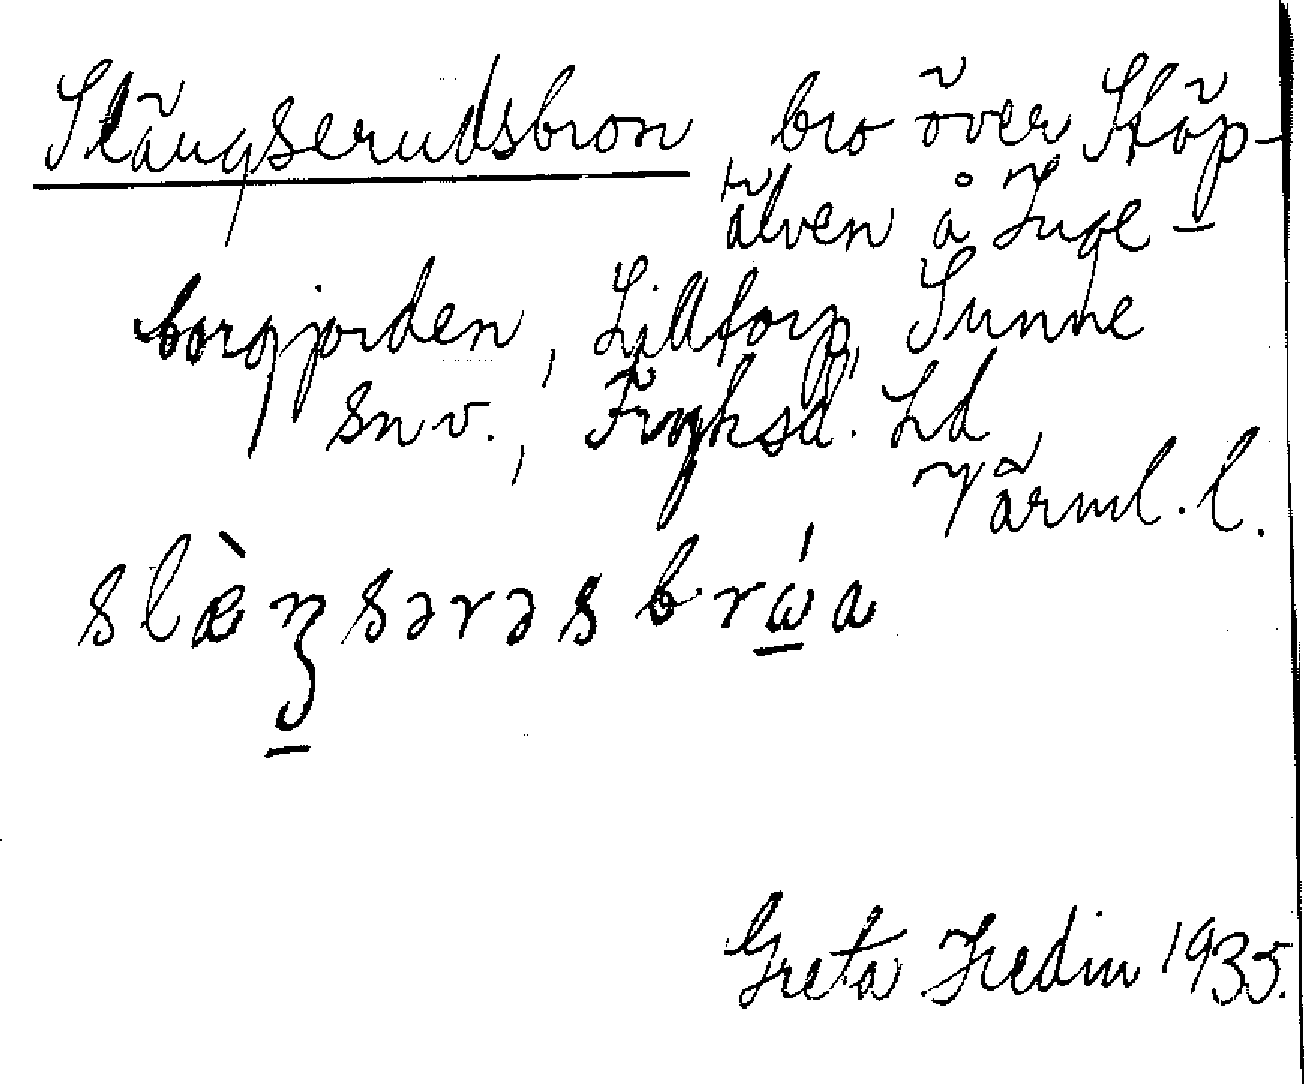 Slängserudsbron bro över Stöp-
älven å Inge-
borgjorden, Lilltorp, Sunne
snv., Fryksd. hd
Värml. l.
slæ̀ŋsərəs brώa
Greta Hedin 1935.